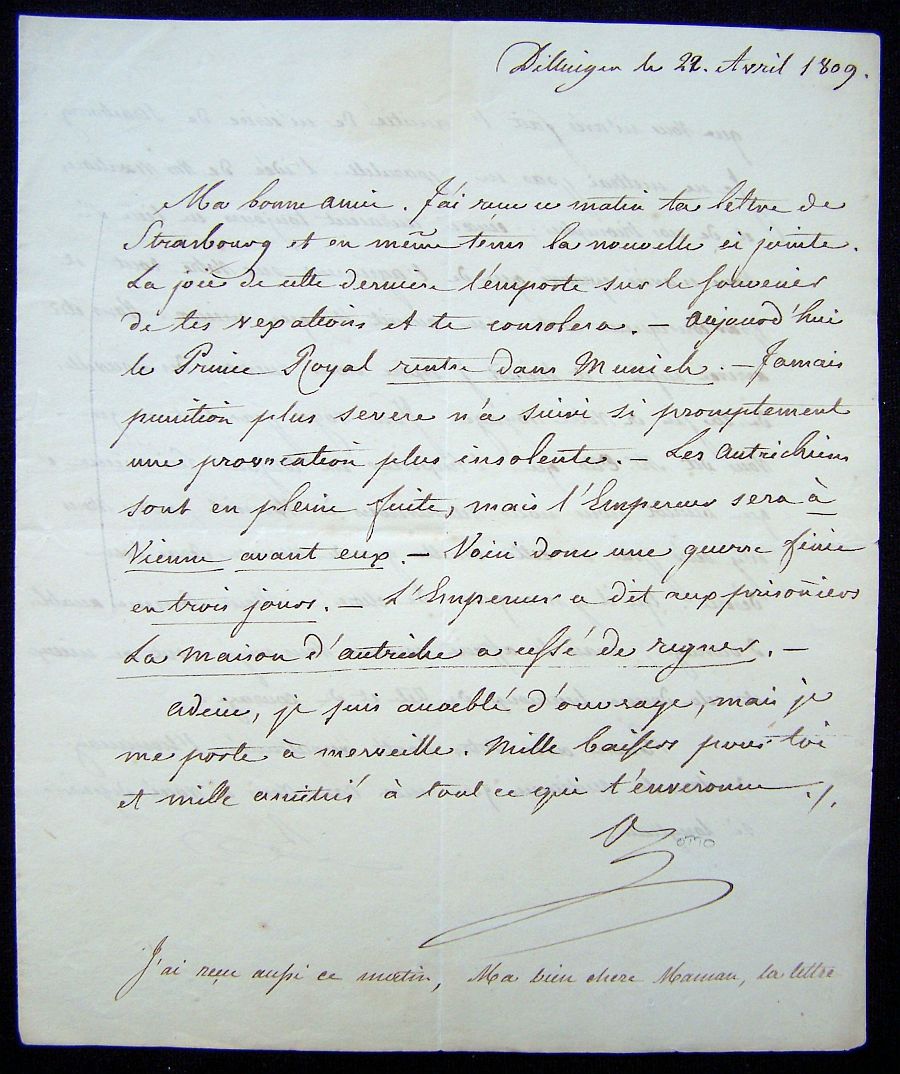 Dillingen le 22. Avril 1809.
Ma bonne amie. J'ai recu ce matin ta lettre de
Strasbourg et en même tems la nouvelle ci jointe.
La joie de cette derniere l'emporte sur le souvenir
de tes vexations et te consolera. — aujourd'hui
le Prince Royal rentre dans Munich. — Jamais
punition plus severe n'a suivi si promptement
une provocation plus insolente. — Les Autrichiens
sont en pleine fuite, mais l'Empereur sera à
Vienne avant eux. — Voici donc une guerre finie
en trois jours. — L'Empereur a dit aux prisonniers
La maison d'autriche a cessé de regner. —
adieu, je suis accablé d'ouvrage, mais je
me porte à merveille. Mille baisers pour toi
et mille amitiés à tout ce qui t'environne ./.
O
OTTO
J'ai reçu aussi ce matin, Ma bien chere Maman, la lettre